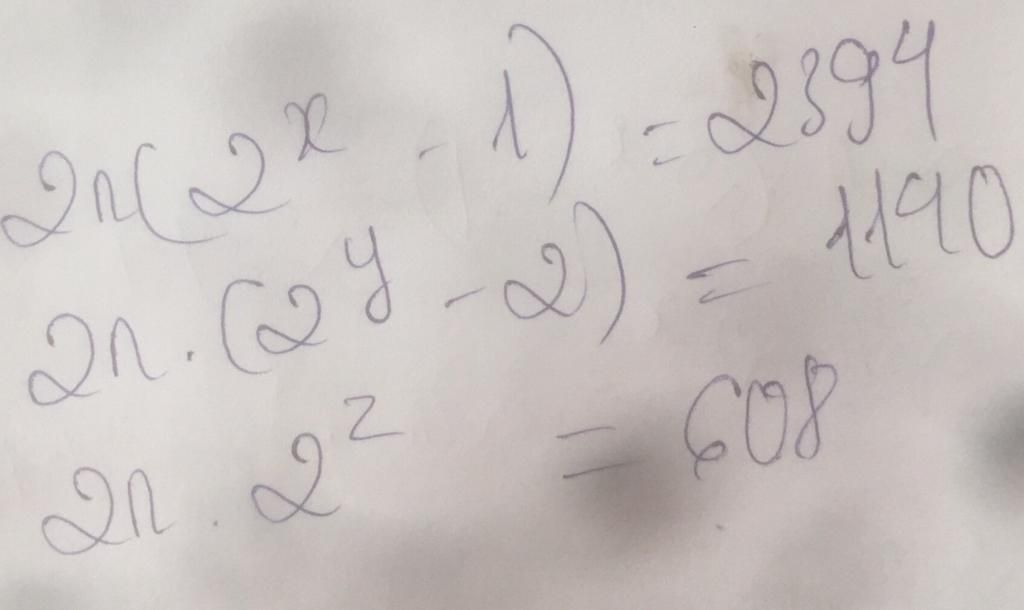 2n(2^x - 1) = 2394
2n · (2^y - 2) = 1140
2n · 2^z = 608